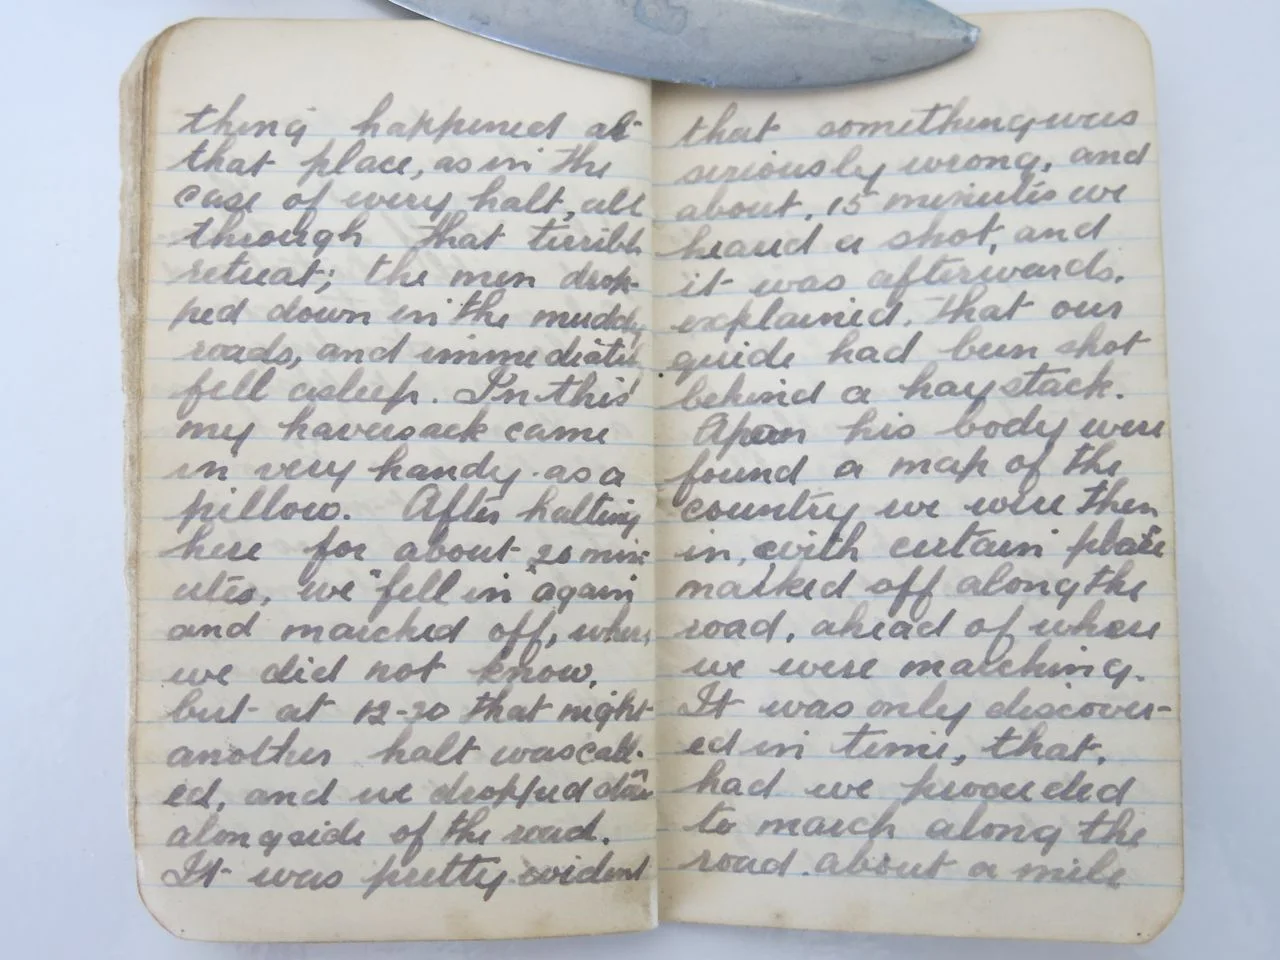 thing happened at
that place, as in the
case of every halt, all
through that terrible
retreat; the men drop-
ped down in the muddy
roads, and immediately
fell asleep. In this
my haversack came
in very handy as a
pillow. After halting
here for about 20 min-
utes, we "fell in" again
and marched off, where
we did not know,
but at 12-30 that night
another halt was call-
ed, and we dropped down
alongside of the road.
It was pretty evident
that something was
seriously wrong, and
about 15 minutes we
heard a shot, and
it was afterwards
explained, that our
guide had been shot
behind a hay stack.
Apon his body were
found a map of the
country we were then
in, with certain places
marked off along the
road, ahead of where
we were marching.
It was only discover-
ed in time, that,
had we proceeded
to march along the
road about a mile